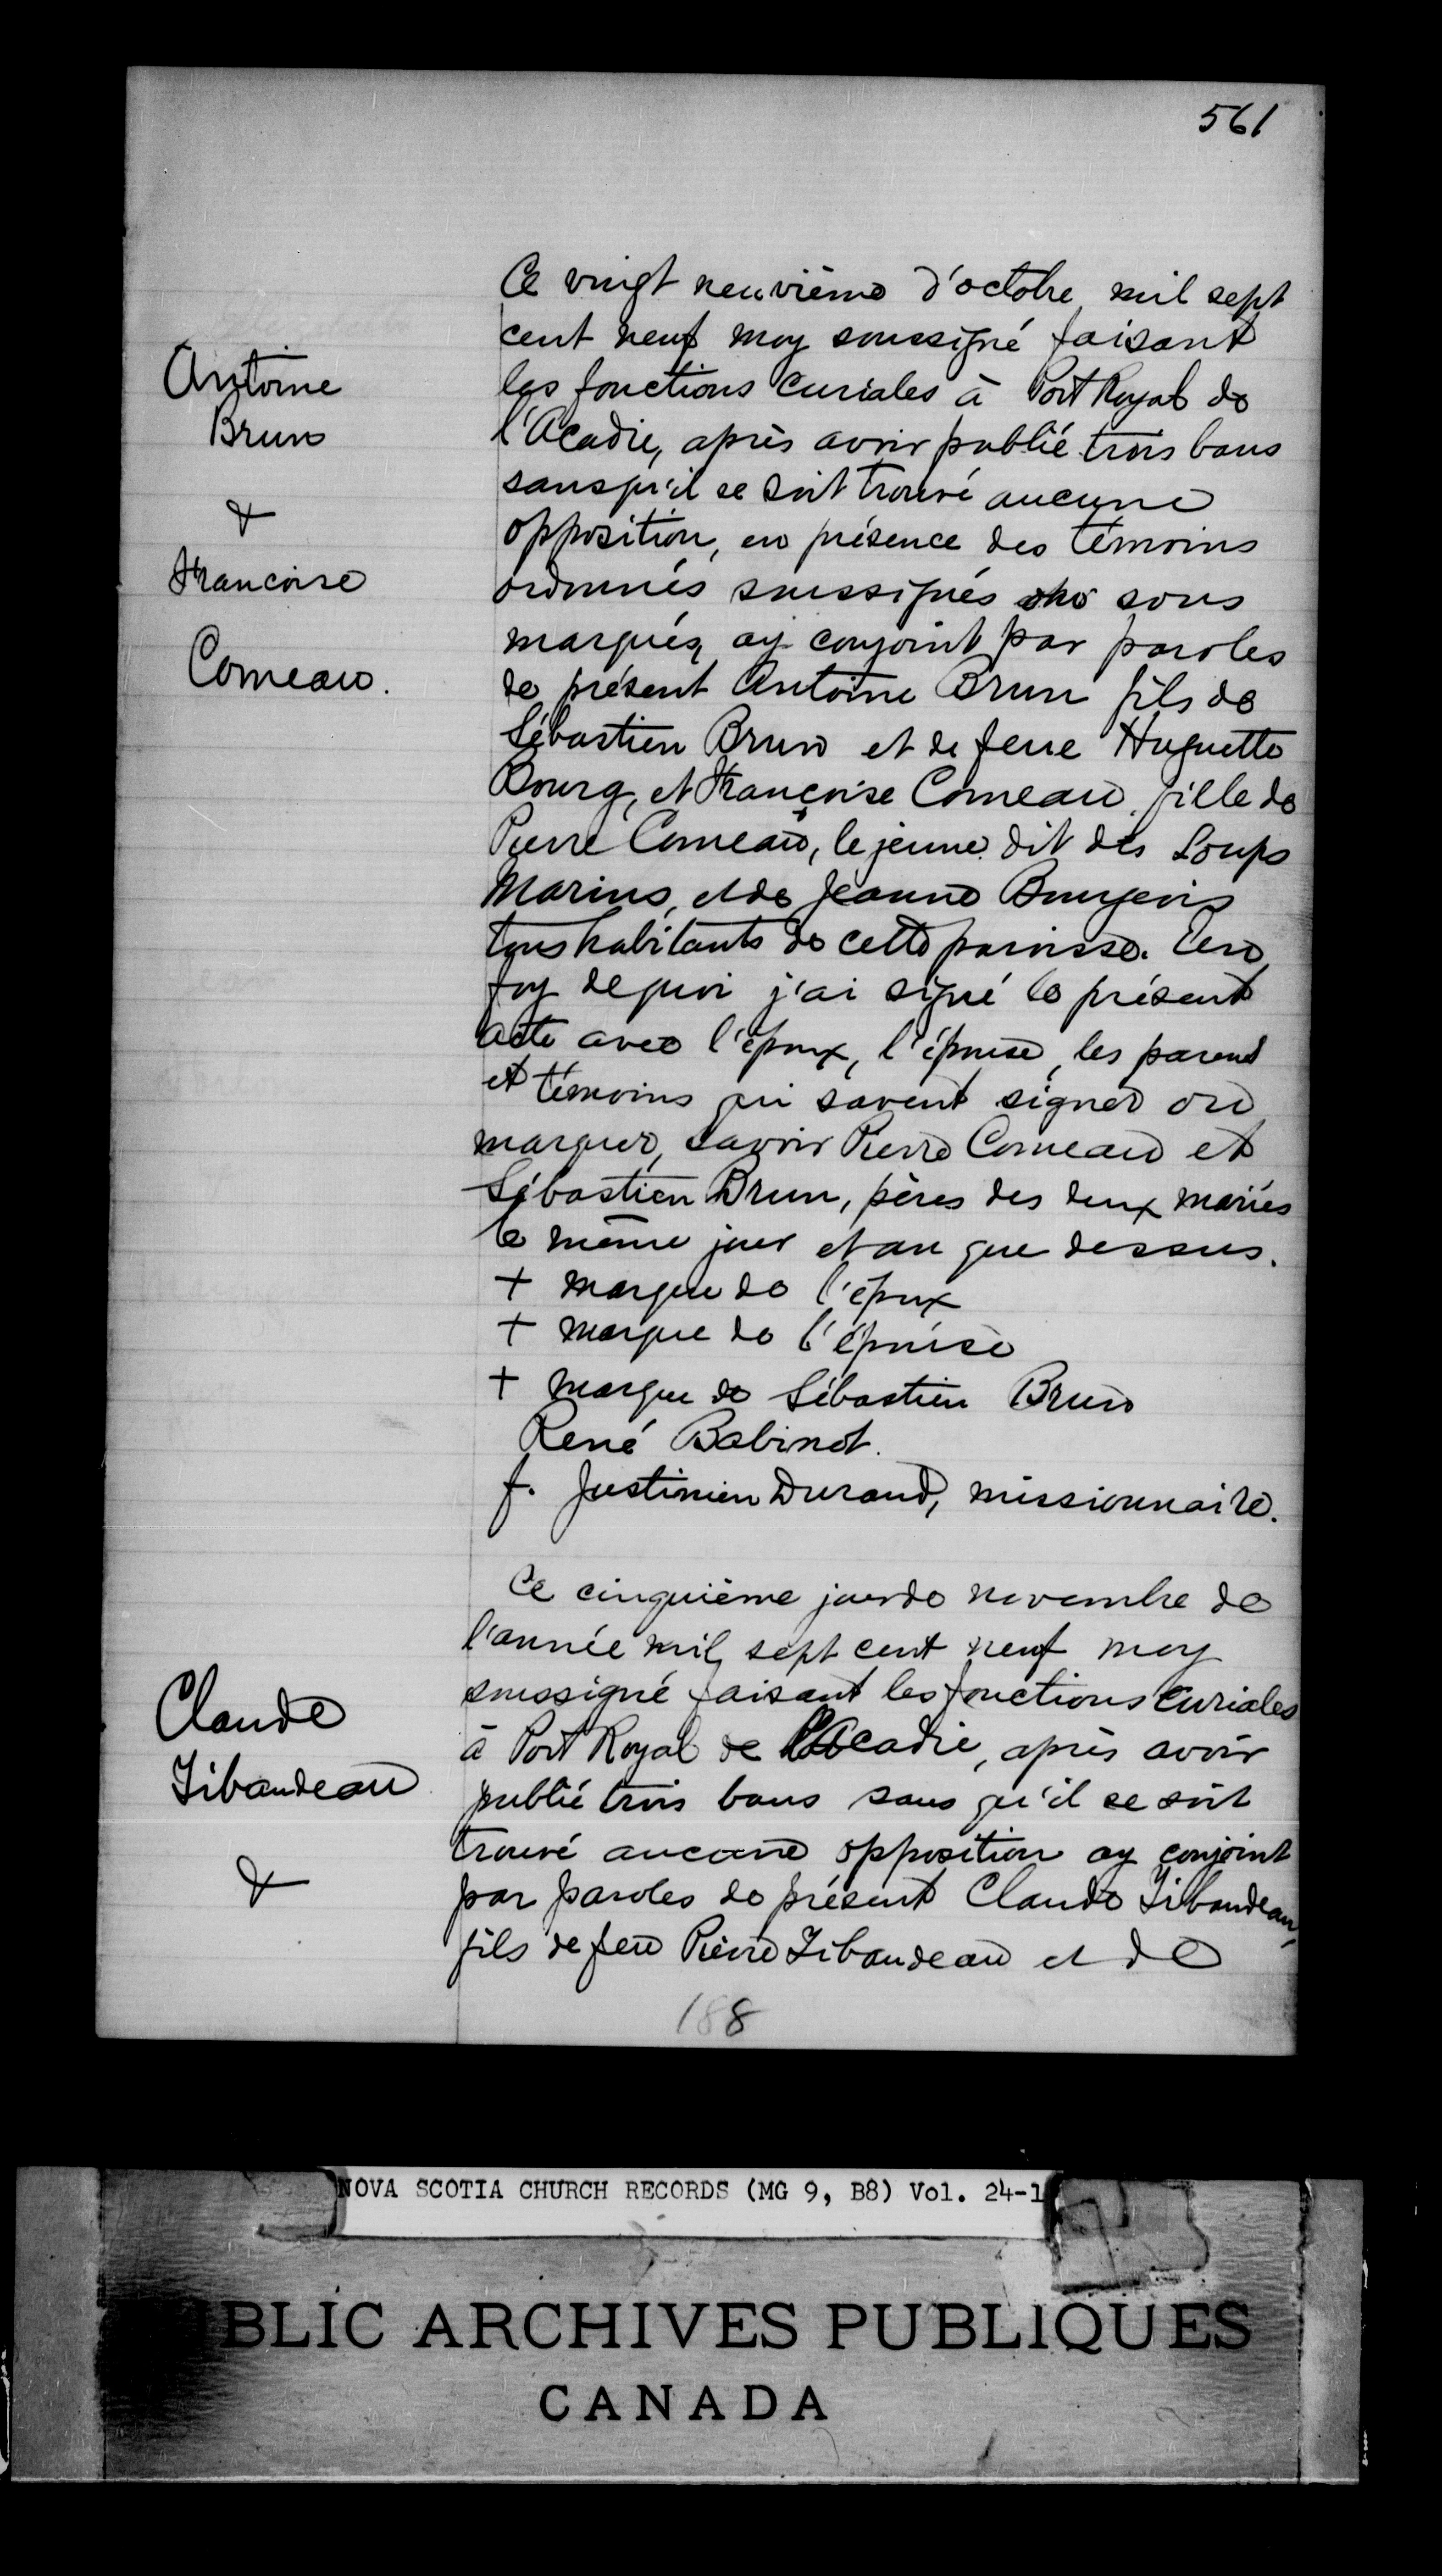 561
Antoine
Brun
&
Francoise
Comeau.
Ce vingt neuvième d'octobre mil sept
cent neuf moy soussigné faisant
les fonctions curiales à Port Royal de
l'Acadie, après avoir publié trois bans
sans qu'il se soit trouvé aucune
opposition, en présence des témoins
ordonnés soussignés ou sous
marqués, ay conjoint par paroles
de présent Antoine Brun fils de
Sébastien Brun et de feue Huguette
Bourg, et Françoise Comeau, fille de
Pierre Comeau, le jeune dit des Loups
Marins, et de Jeanne Bourgeois
tous habitants de cette paroisse. En
foy de quoi j'ai signé le présent
acte avec l'époux, l'épouse, les parents
et témoins qui savent signer ou
marquer, savoir Pierre Comeau et
Sébastien Brun, pères des deux mariés
le même jour et an que dessus.
+ marque de l'époux
+ marque de l'épouse
+ marque de Sébastien Brun
René Babinot.
f. Justinien Durand, missionnaire.
Claude
Tibaudeau
&
Ce cinquième jour de novembre de
l'année mil sept cent neuf moy
soussigné faisant les fonctions curiales
à Port Royal de l'Acadie, après avoir
publié trois bans sans qu'il se soit
trouvé aucune opposition ay conjoint
par paroles de présent Claude Tibaudeau,
fils de feu Pierre Tibaudeau et de
188
NOVA SCOTIA CHURCH RECORDS (MG 9, B8) Vol. 24-1
BLIC ARCHIVES PUBLIQUES
CANADA